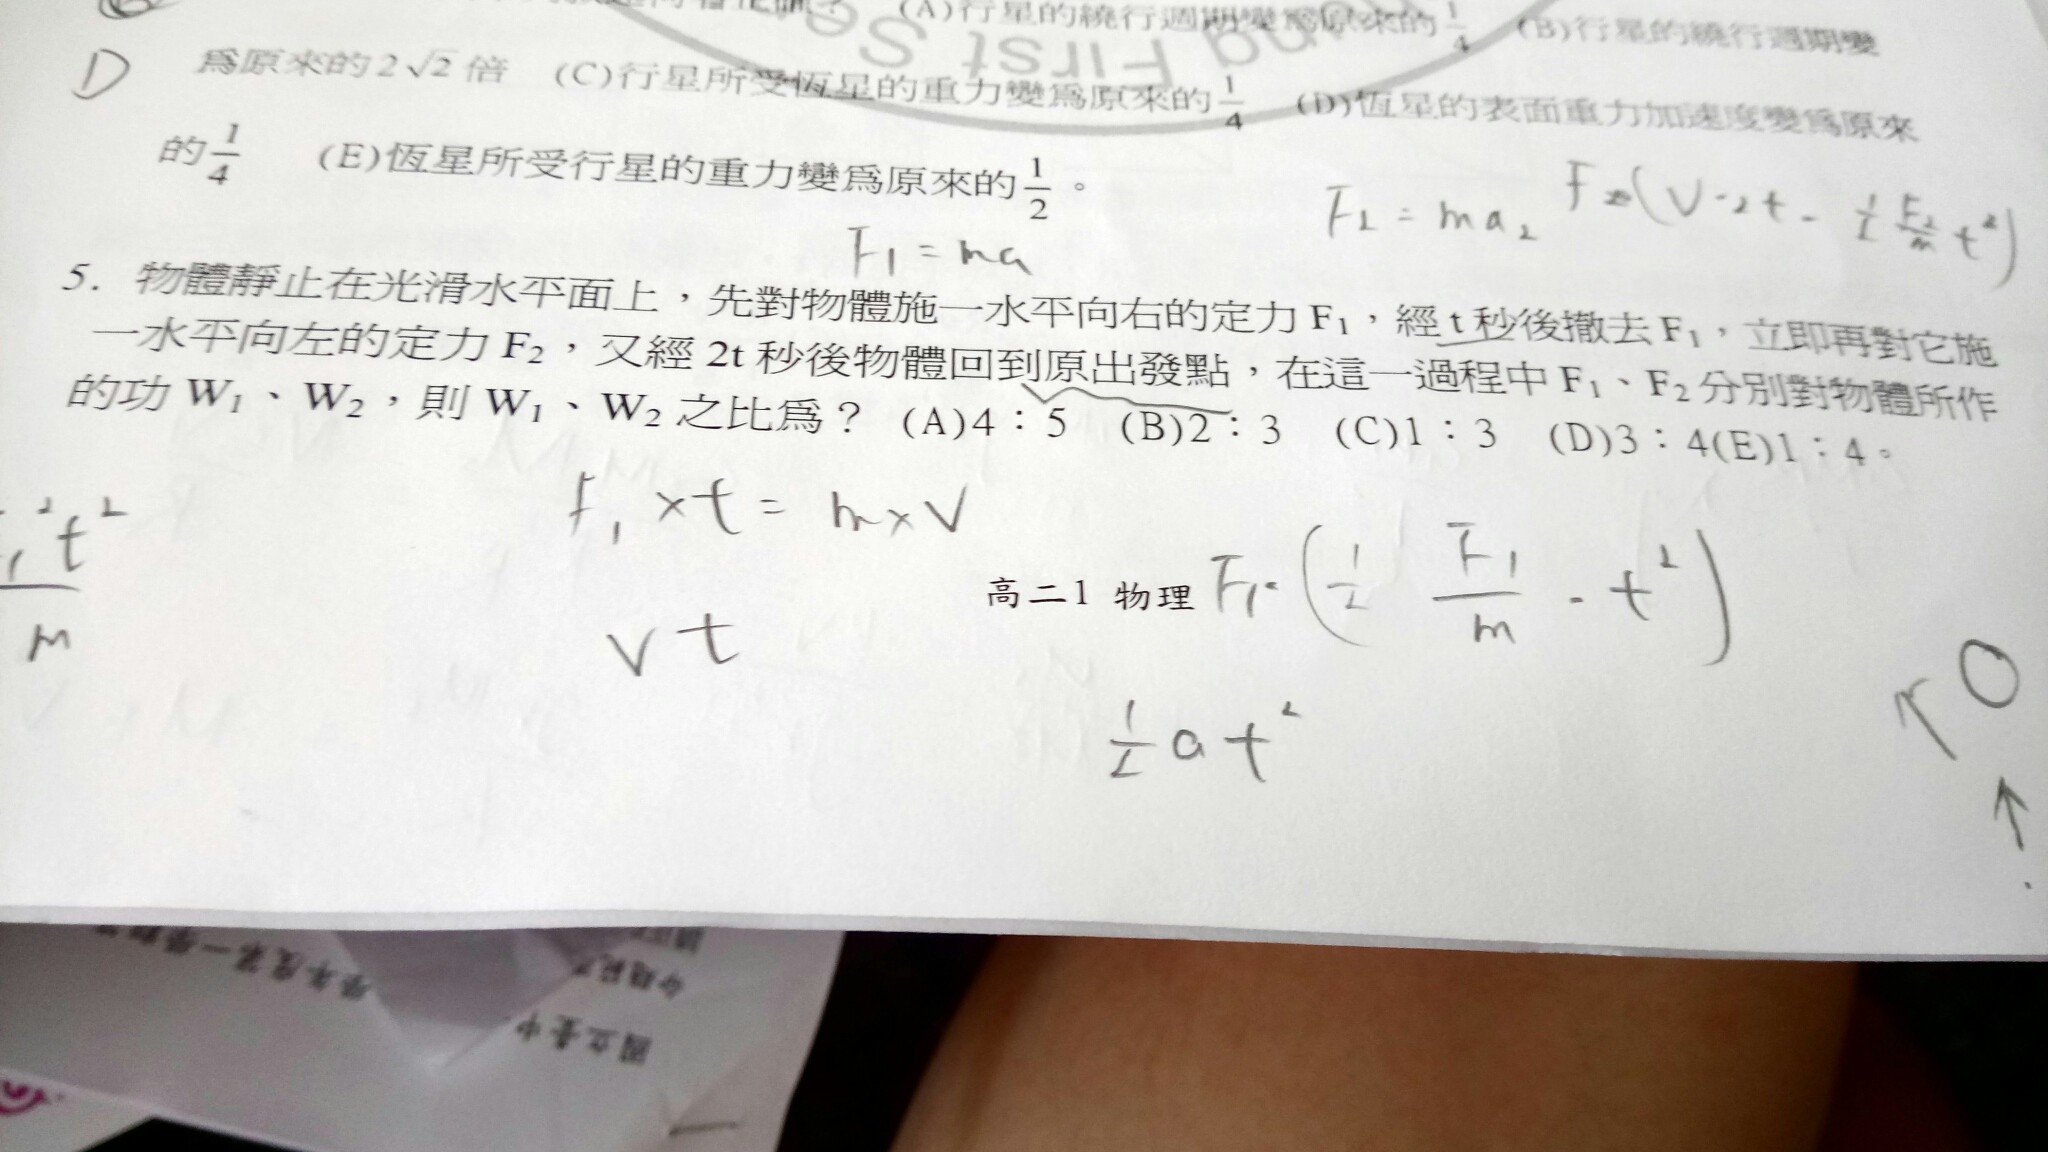 (A)行星的繞行週期變爲原來的1/4 (B)行星的繞行週期變
D 爲原來的2√2倍 (C)行星所受恆星的重力變爲原來的1/4 (D)恆星的表面重力加速度變爲原來
的1/4 (E)恆星所受行星的重力變爲原來的1/2。
F₁=ma
F₂=ma₂
(V·2t-1/2 F₂/m t²)
5. 物體靜止在光滑水平面上,先對物體施一水平向右的定力F₁,經t秒後撤去F₁,立即再對它施
一水平向左的定力F₂,又經2t秒後物體回到原出發點,在這一過程中F₁、F₂分別對物體所作
的功W₁、W₂,則W₁、W₂之比爲? (A)4:5 (B)2:3 (C)1:3 (D)3:4(E)1:4。
F₁×t=m×V
Vt
高二1 物理
F₁·(1/2 F₁/m·t²)
1/2at²
t²
m
First Se
國立臺中